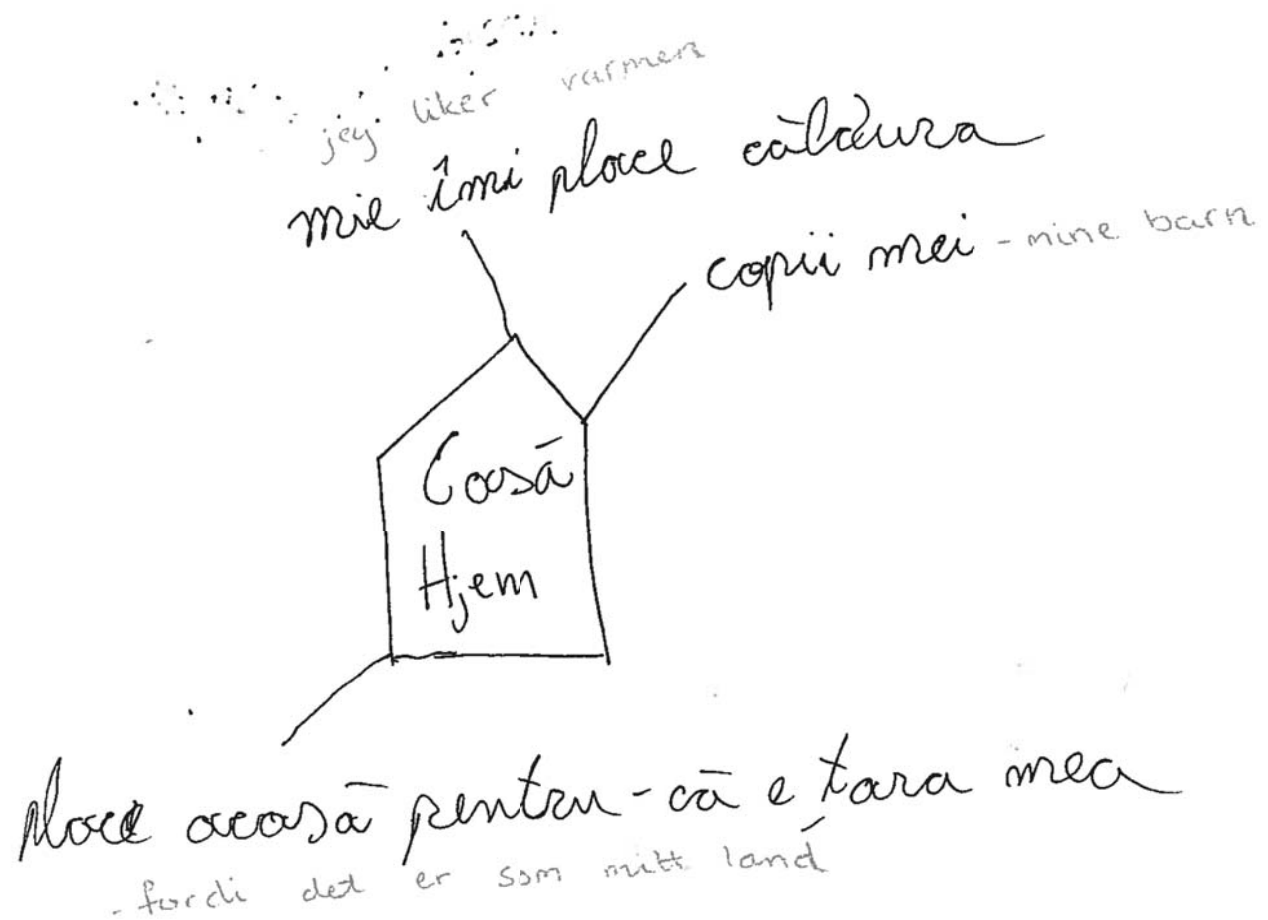 jeg liker varmen
mie îmi place căldura
copii mei - mine barn
Casă
Hjem
place acasă pentru-că e țara mea
- fordi det er som mitt land